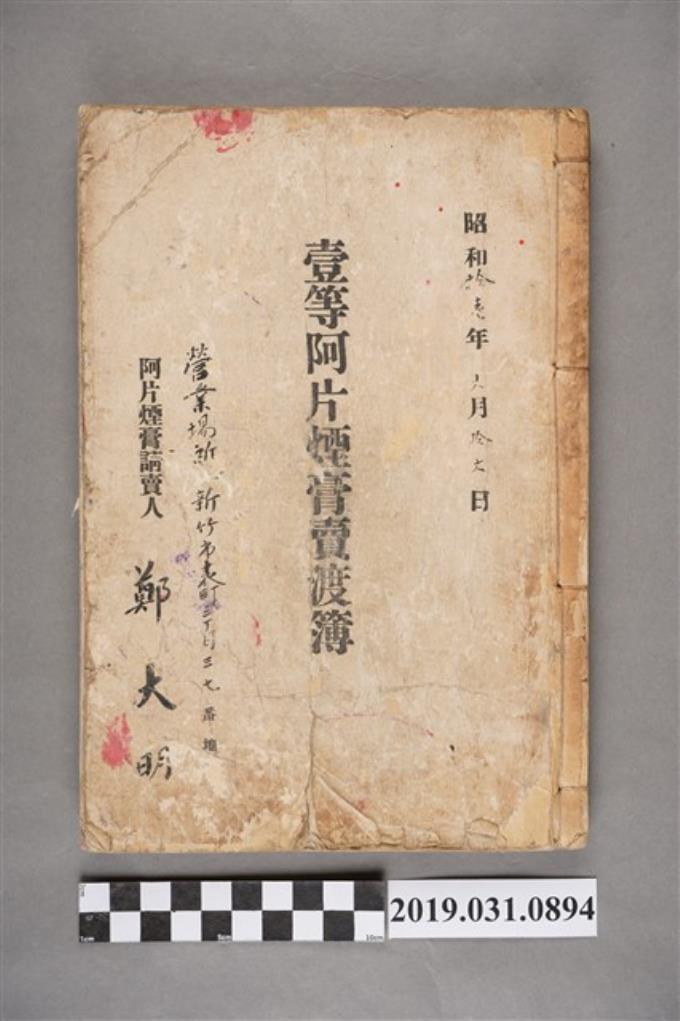 昭和拾壱年六月拾六日
壹等阿片煙膏賣渡簿
營業場所 新竹市表町三丁目三七番地
阿片煙膏請賣人 鄭大明
1cm 5cm 10cm
2019.031.0894